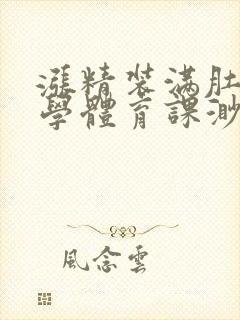 漲精裝滿肚
學體育課渺
風念雲